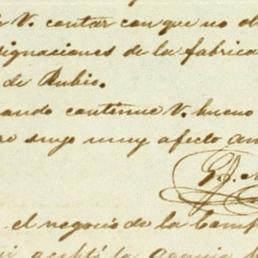 V. contar con que no d
signaciones de la fabrica
de Rubio.
ando continue V. bueno
suyo muy afecto am
G. J.
el negocio de la Comp
aceptó la